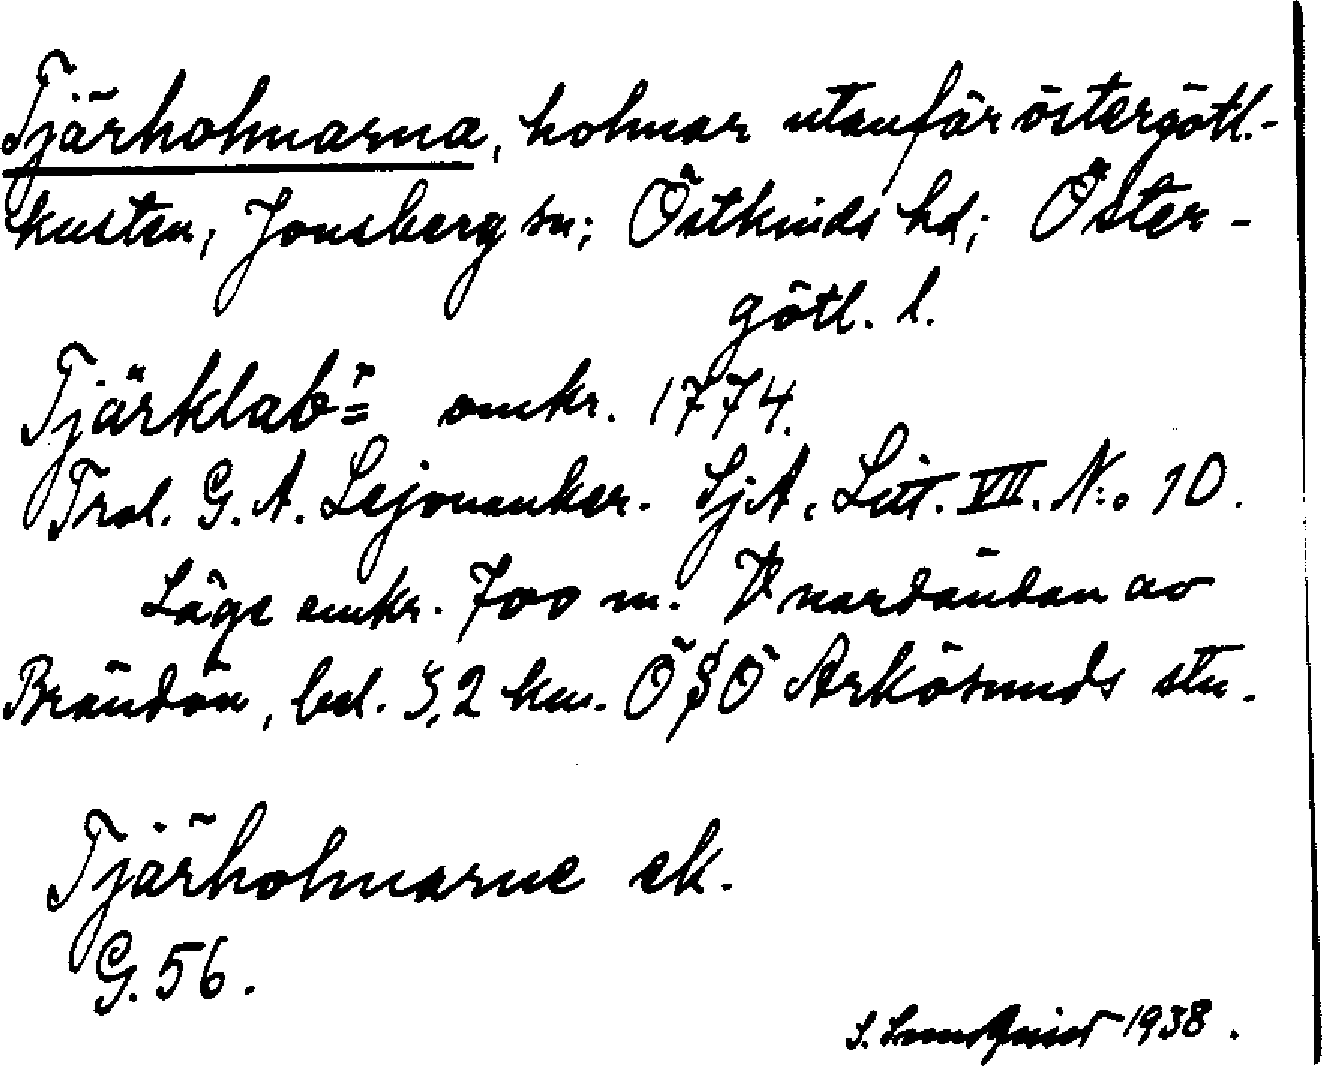 Tjärholmarna, holmar utanför östergötl.-
kusten, Jonsberg sn; Östkinds hd; Öster-
götl. l.
Tjärklabr= omkr. 1774.
Trol. G. A. Lejonanker. SjA. Litt. VII. No 10.
Läge omkr. 700 m. V nordändan av
Brändön, bel. 3,2 km. Ö§Ö Arkösunds stn.
Tjärholmarne ek.
G. 56.
S. Lundquist 1938.